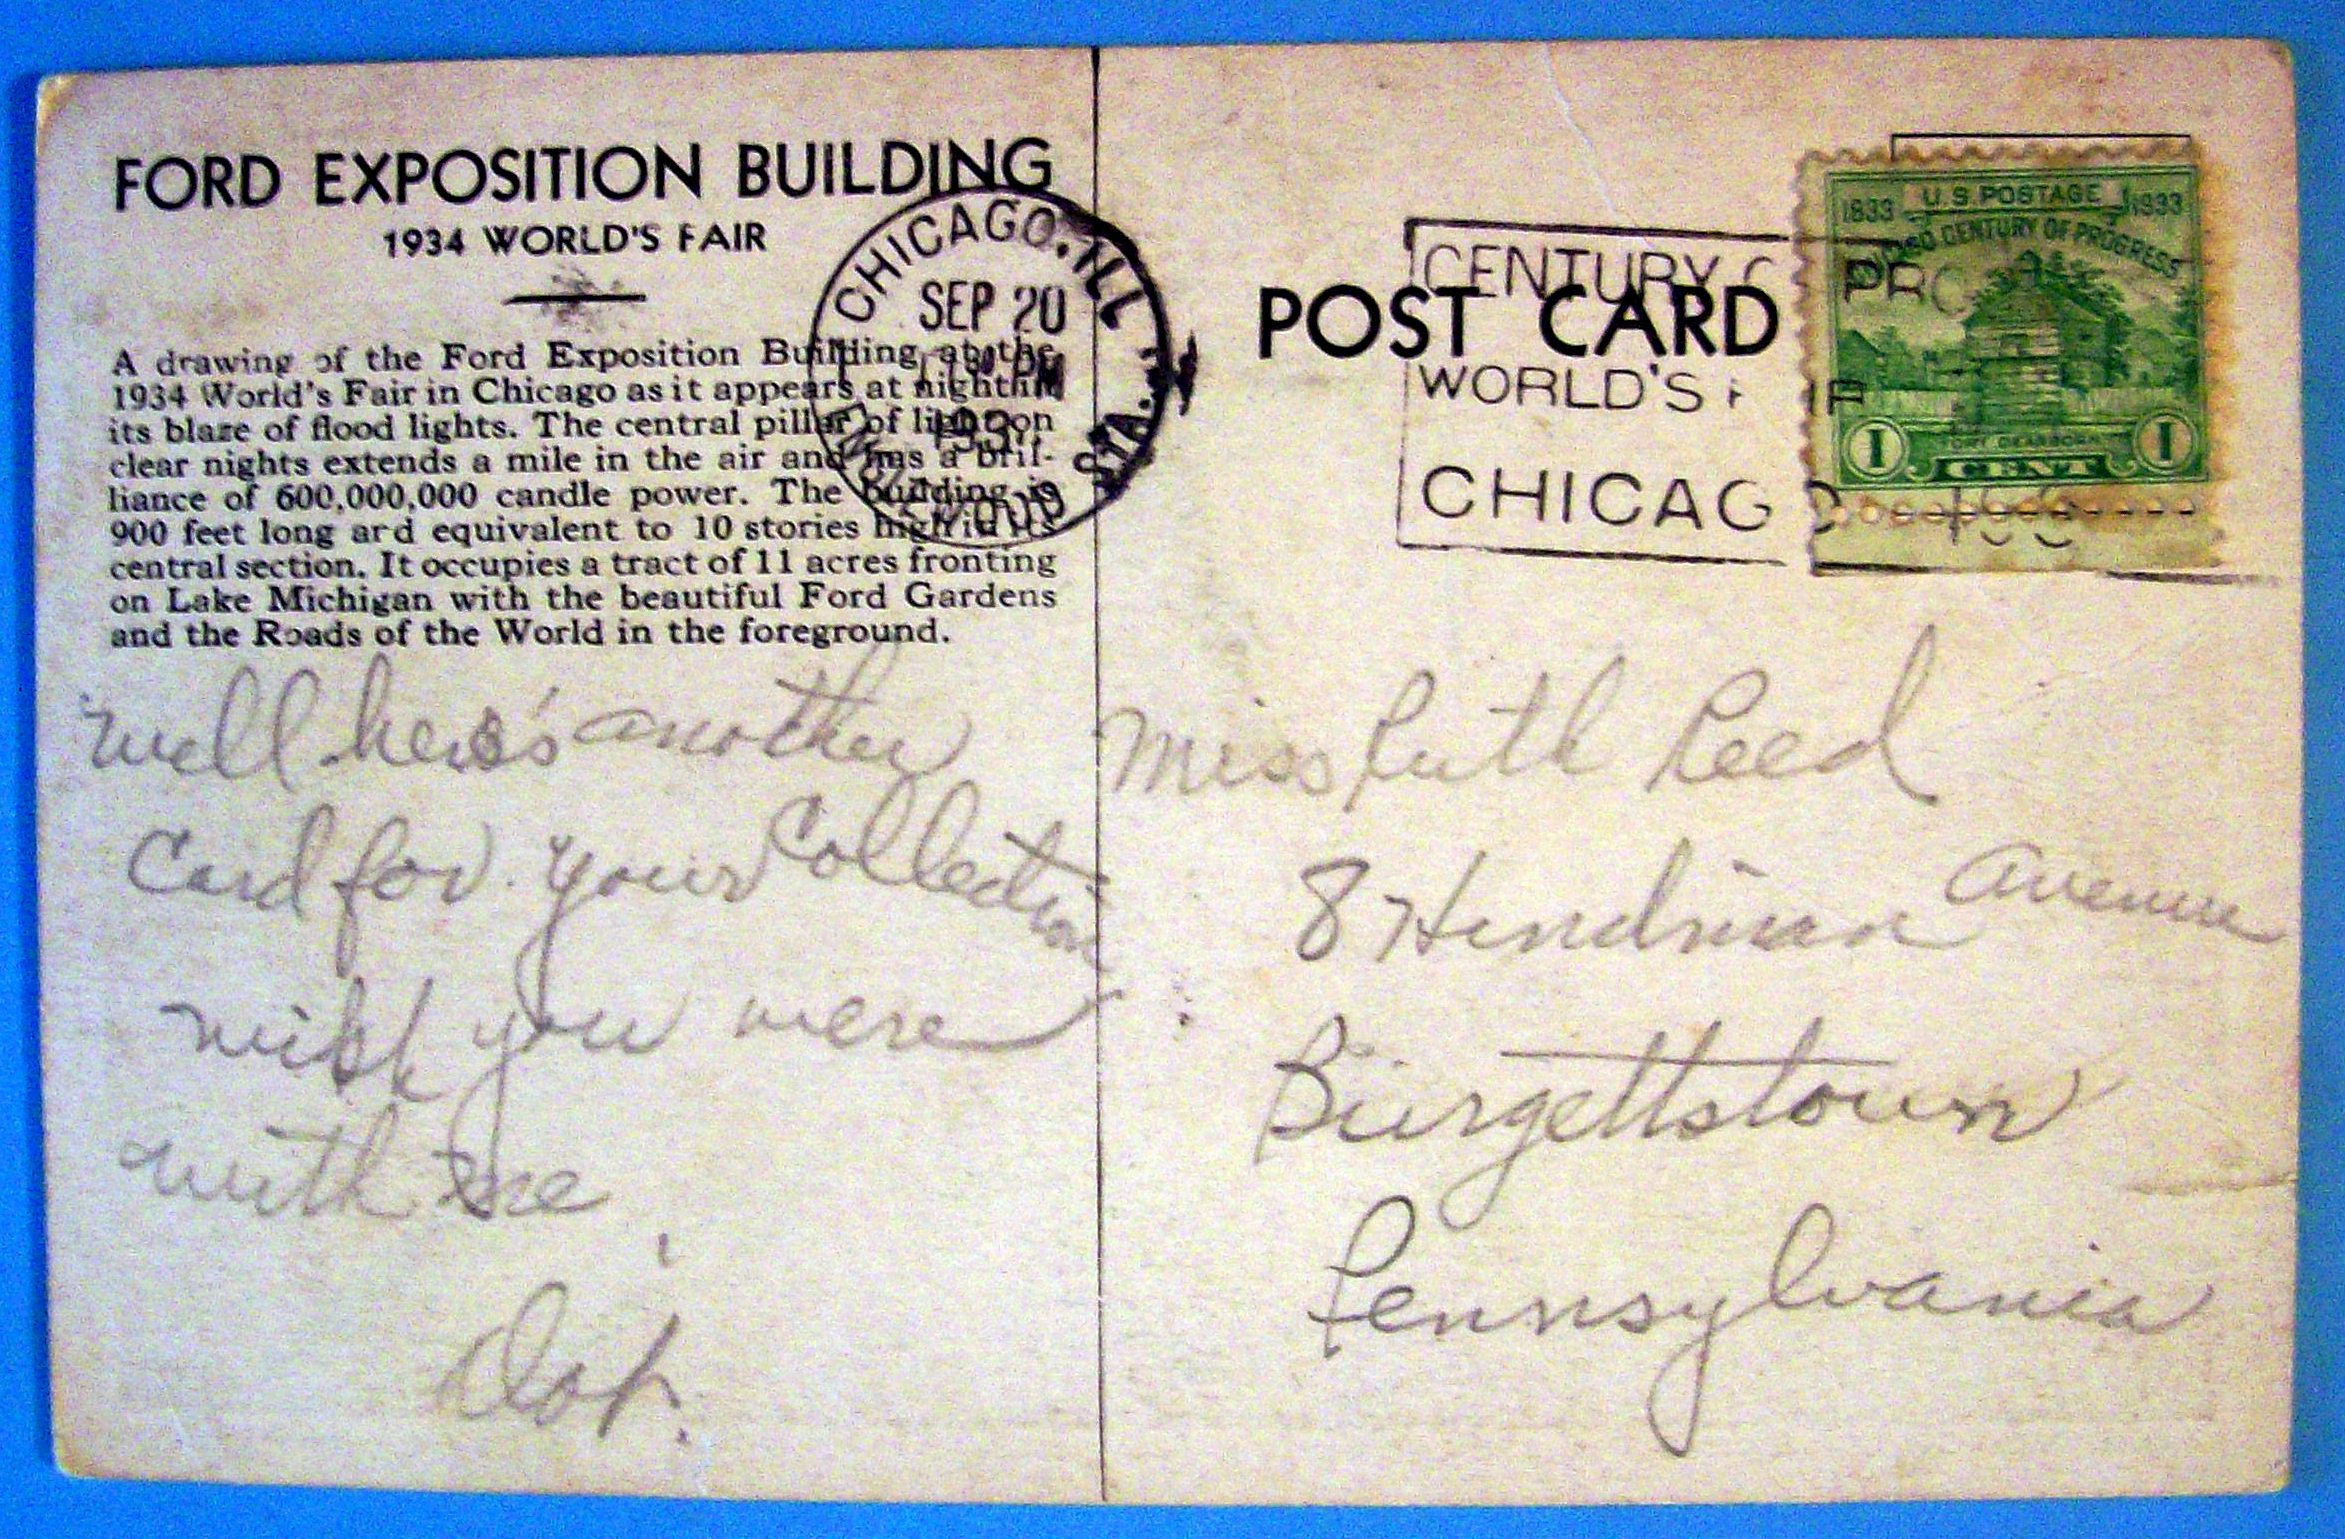 FORD EXPOSITION BUILDING
1934 WORLD'S FAIR
A drawing of the Ford Exposition Building at the
1934 World's Fair in Chicago as it appears at night in
its blaze of flood lights. The central pillar of light on
clear nights extends a mile in the air and has a bril-
liance of 600,000,000 candle power. The building is
900 feet long and equivalent to 10 stories high in its
central section. It occupies a tract of 11 acres fronting
on Lake Michigan with the beautiful Ford Gardens
and the Roads of the World in the foreground.
Well here's another
Card for your Collection
wish you were
with me
Dot.
CHICAGO, ILL
SEP 20
PM
193
STA.
POST CARD
CENTURY O PRO
WORLD'S F IR
CHICAGO
1833 U.S. POSTAGE 1933
CENTURY OF PROGRESS
FORT DEARBORN
1 CENT 1
Miss Ruth Reed
8 Hindman Avenue
Burgettstown
Pennsylvania